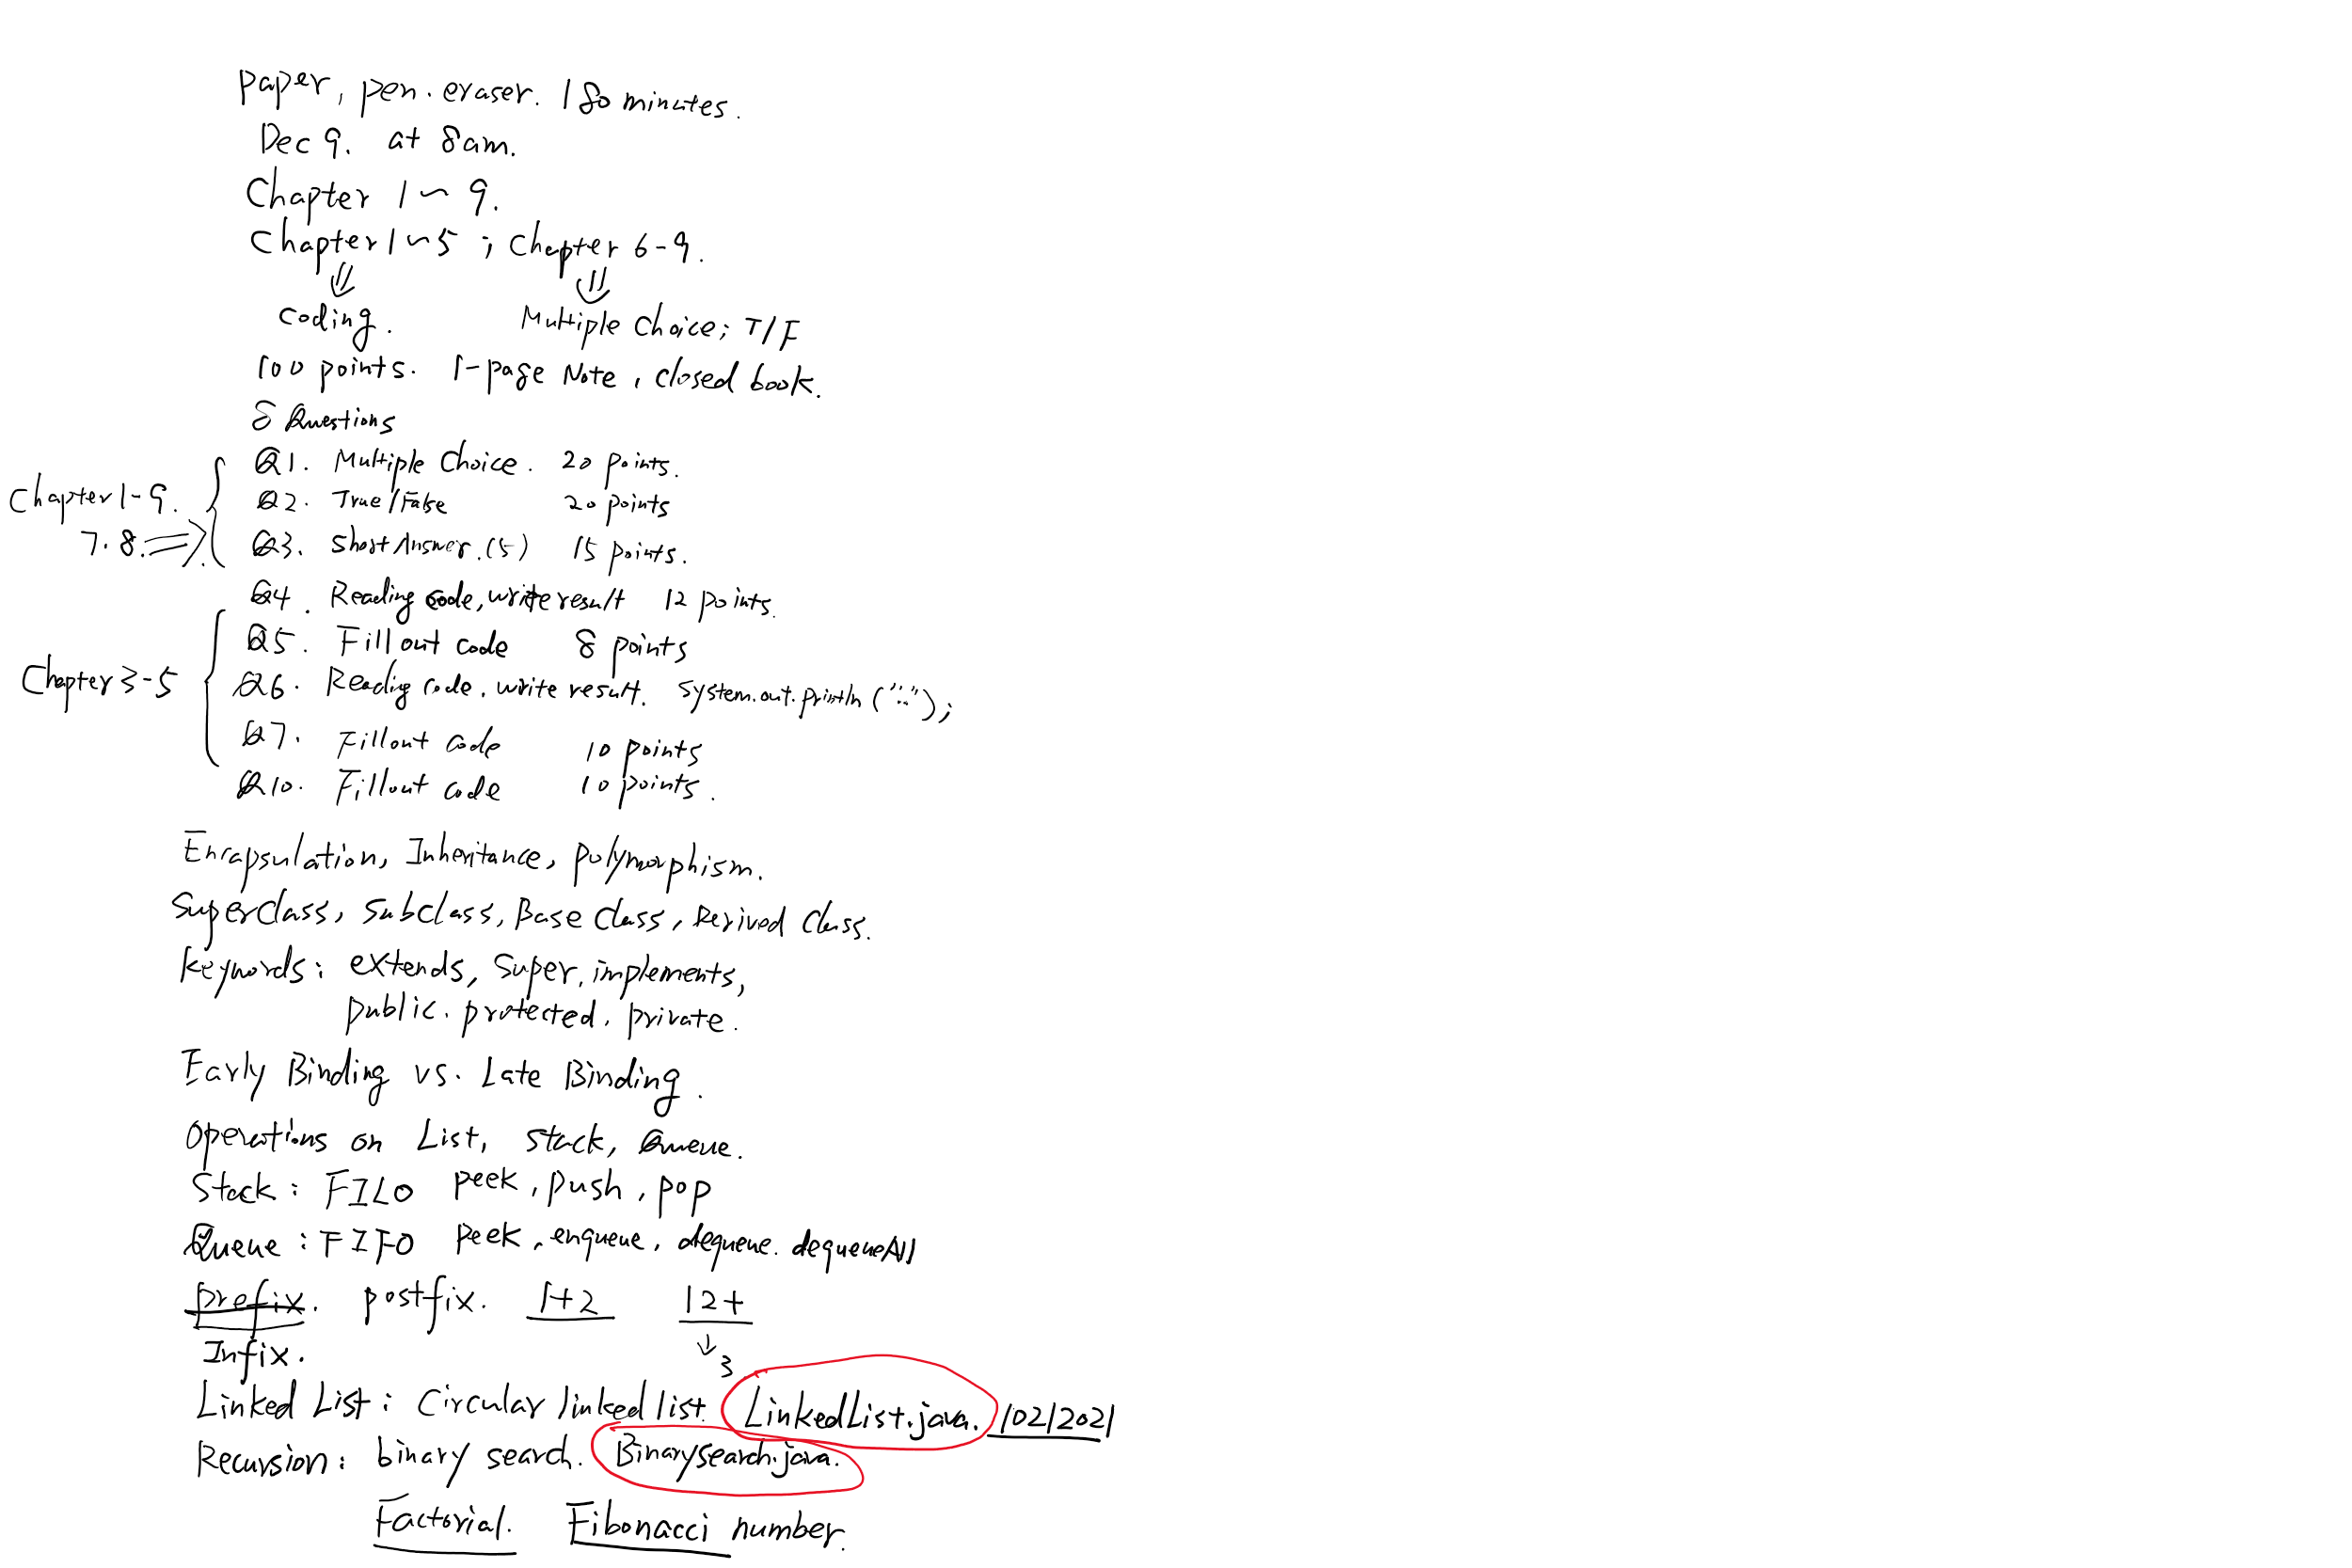 paper, pen. eraser. 180 minutes.
Dec 9. at 8am.
Chapter 1~9.
Chapter 1~5 ; Chapter 6-9.
⇓ ⇓
coding. Multiple Choice; T/F
100 points. 1-page Note, closed book.
8 Questions
Q1. Multiple Choice. 20 points.
Chapter 1-9.
Q2. True/False 20 points
7.8. ⇒
Q3. Short Answer.(5) 15 points.
Q4. Reading code, write result 12 points.
Q5. Fill out code 8 points
Chapter 3-5
Q6. Reading code, write result. System.out.println("...");
Q7. Fillout code 10 points
Q10. Fillout code 10 points.
Encapsulation, Inheritance, polymorphism.
Superclass, subclass, Base Class, Derived Class.
Keywords: extends, super, implements,
public. protected. private.
Early Binding vs. Late Binding.
Operations on List, stack, Queue.
Stack: FILO peek, push, pop
Queue: FIFO peek, enqueue, dequeue. dequeueAll
prefix. postfix. 1+2 12+
↓ 3
Infix.
Linked List: Circular linked list. LinkedList.java. 102/2021
Recursion: binary search. Binarysearch.java.
Factorial. Fibonacci number.